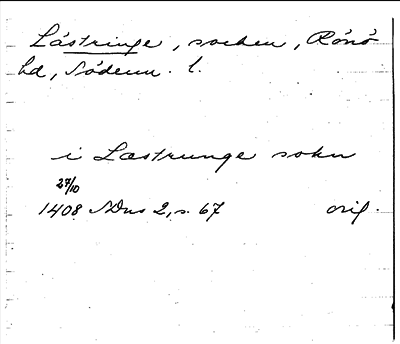 Lästringe, socken, Rönö
hd, Söderm. l.
i Læstrunge sokn
27/10
1408 SDns 2, s. 67 orig.